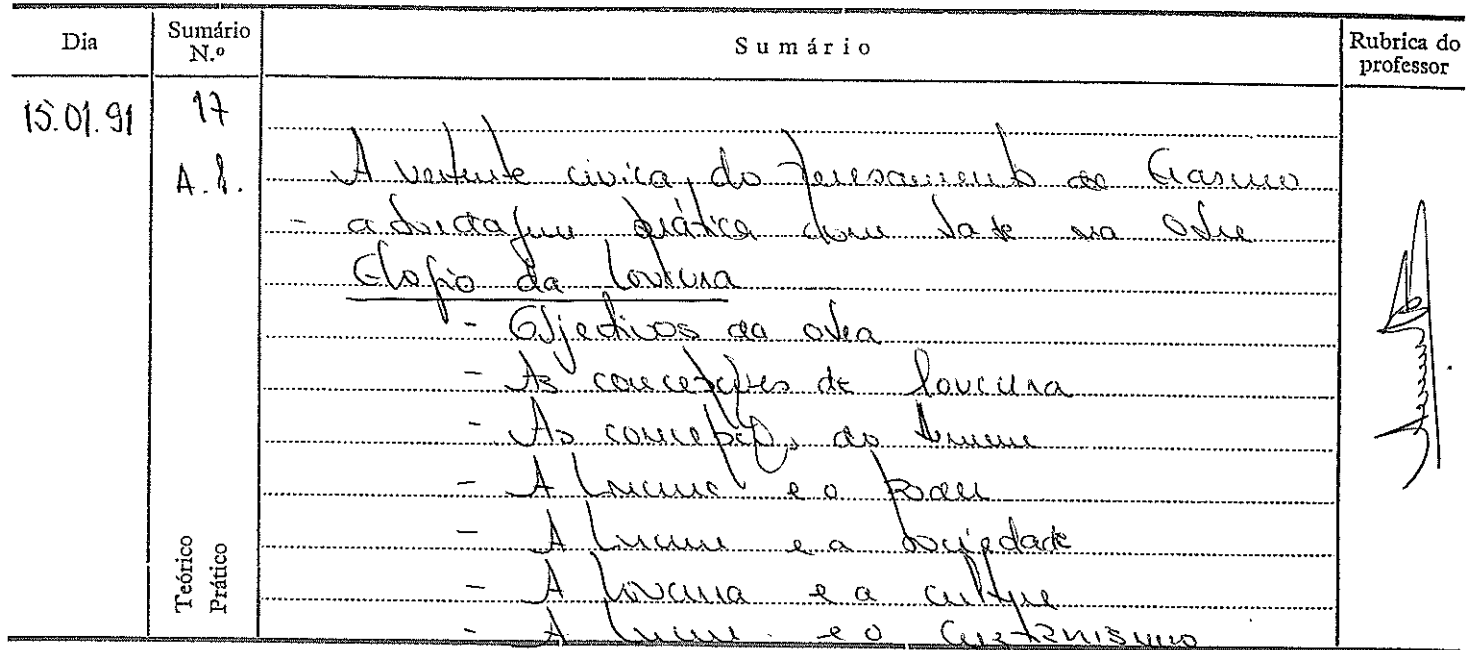 Dia
Sumário N.º
Sumário
Rubrica do professor
15.01.91
17
A vertente cívica do pensamento de Erasmo
- abordagem prática com base na obra
Elogio da loucura
- Objectivos da obra
- As concepções de loucura
- As concepções do
- A loucura e o poder
- A loucura e a sociedade
- A loucura e a cultura
- A loucura e o Cristianismo
Teórico
Prático